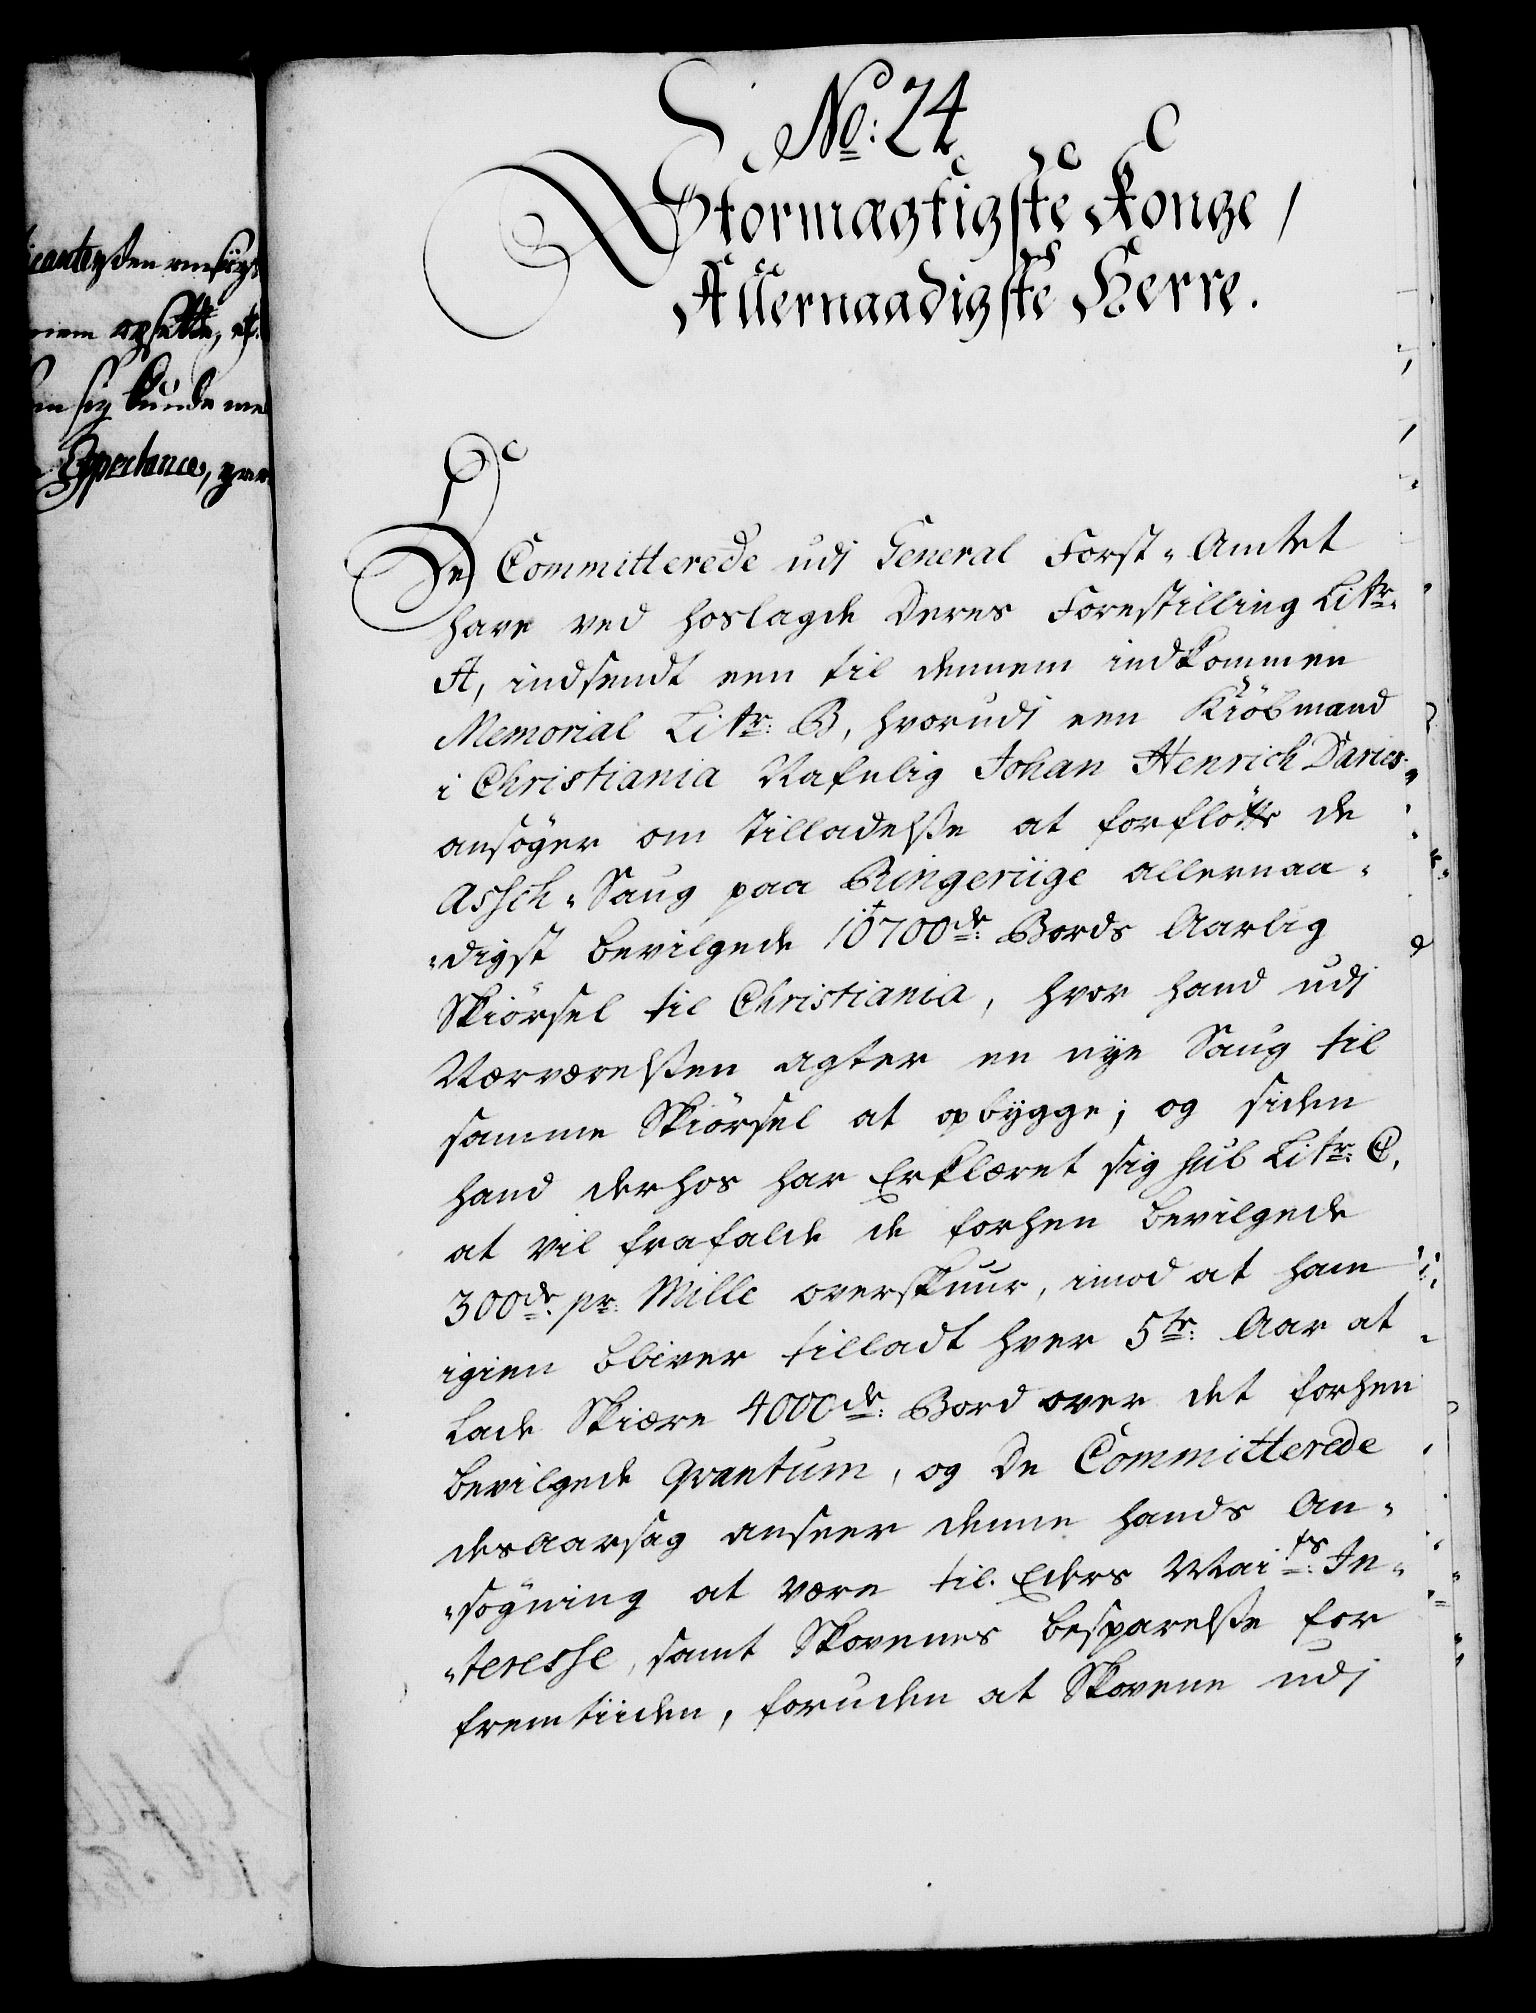 No: 24
Stormægtigste Konge,
Allernaadigste Herre.
De Committerede udj General Forst-Amtet
have ved hoslagde deres Forestilling Litr:
A, indsendt een til dennem indkommen
Memorial Litr: B, hvorudj een Kiöbmand
i Christiania Nafnlig Johan Henrich Daries
ansöger om tilladelsse at forflötte de
Assch-Saug paa Ringeriige allernaa-
-digst bevilgede 10700de: Bords Aarlig
Skiörsel til Christiania, hvor hand udj
Nærværelssen agter en nÿe Saug til
samme Skiörsel at opbÿgge; og siden
hand derhos har Erklæret sig sub Litr: C,
at vil frafalde de forhen bevilgede
300de: pr: Mille overskuur, imod at ham
igien bliver tilladt hver 5te: Aar at
lade Skiære 4000de: Bord over det forhen
bevilgede qvantum, og De Committerede
desaarsag anseer denne hands An-
-sögning at være til Eders Maits: In-
-teresse, samt Skovenes besparelsse for
fremtiiden, foruden at Skovene udj
opsette, at
sig kunde med